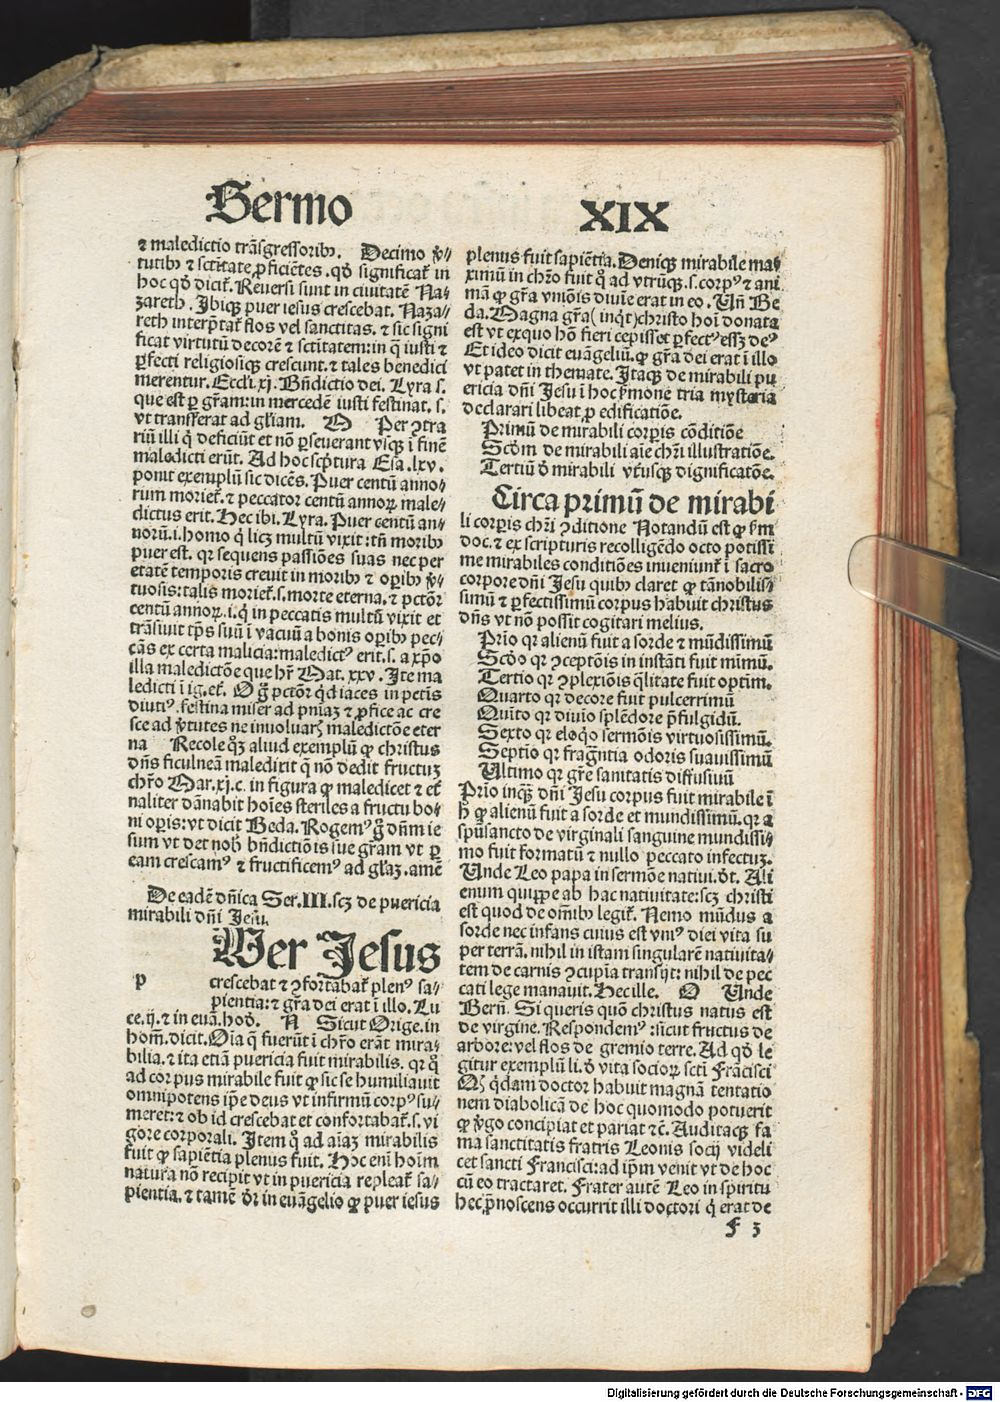 Sermo XIX
⁊ maledictio trãsgressoribꝰ. Decimo v̾/
tutibꝫ ⁊ sctitate ꝓficiẽtes. qd̾ significat̾ in
hoc qd̾ dicit̾. Reuersi sunt in ciuitatẽ Na/
zareth. Ibiqꝫ puer iesus crescebat. Naza/
reth interp̃tat̾ flos vel sanctitas. ⁊ sic signi
ficat virtutũ decorẽ ⁊ sctitatem: in q̃ iusti ⁊
ꝑfecti religiosiqꝫ crescunt. ⁊ tales benedici
merentur. Eccli. xj. Bñdictio dei. Lyra s.
que est ꝑ gr̃am: in mercedẽ iusti festinat. s.
vt transferat ad gl̃iam. O Per ↄtra
riũ illi q̃ deficiũt et nõ ꝑseuerant vsqꝫ ĩ finẽ
maledicti erũt. Ad hoc scp̃tura Esa. lxv.
ponit exemplũ sic dicẽs. Puer centũ anno/
rum moriet̾. ⁊ peccator centũ annoꝝ male/
dictus erit. Hec ibi. Lyra. Puer centũ an/
norũ. i. homo q̃ licꝫ multũ vixit: tñ moribꝫ
puer est. qꝛ sequens passiões suas nec per
etatẽ temporis creuit in moribꝫ ⁊ oꝑibꝫ v̾/
tuosis: talis moriet̾. s. morte eterna. ⁊ pctõr
centũ annoꝝ. i. q̃ in peccatis multũ vixit et
trãsiuit tp̃s suũ ĩ vacuũ a bonis oꝑibꝫ pec/
cãs ex certa malicia: maledictꝰ erit. s. a xp̃o
illa maledictõe que hr̃ Mat. xxv. Ite ma
ledicti ĩ ig. et̾. O g̾ pctõr q̃ diu iaces in petis
diutiꝰ. festina miser ad pniaꝫ ⁊ ꝓfice ac cre
sce ad v̾tutes ne inuoluaꝝ maledictõe eter
na Recole qꝫ aliud exemplũ ꝙ christus
dñs ficulneã maledixit q̃ nõ dedit fructuꝫ
chr̃o Mar. xj. c. in figura ꝙ maledicet ⁊ et̾
naliter dãnabit hoĩes steriles a fructu bo/
ni oꝑis: vt dicit Beda. Rogemꝰ g̾ dñm ie
sum vt det nob̾ bñdictiõis sue gr̃am vt ꝑ
eam crescamꝰ ⁊ fructificemꝰ ad gl̃aꝫ. amẽ
De eadẽ dñica Ser. III. scꝫ de puericia
mirabili dñi Jesu.
p Uer Jesus
crescebat ⁊ ↄfortabat̾ plenꝰ sa/
pientia: ⁊ gr̃a dei erat ĩ illo. Lu
ce. ij. ⁊ in euã. hod̾. A Sicut Orige. in
hom̃. dicit. Oĩa q̃ fuerũt ĩ chr̃o erãt mira/
bilia. ⁊ ita etiã puericia fuit mirabilis. qꝛ q̃
ad corpus mirabile fuit ꝙ sic se humiliauit
omnipotens ip̃e deus vt infirmũ corpꝰ su/
meret: ⁊ ob id crescebat et confortabat̾. s. vi
gore corporali. Item q̃ ad aĩaꝫ mirabilis
fuit ꝙ sapiẽtia plenus fuit. Hoc enĩ hoĩm
natura nõ recipit vt in puericia repleat̾ sa/
pientia. ⁊ tamẽ d̾r in euãgelio ꝙ puer iesus
plenus fuit sapiẽtia. Deniqꝫ mirabile ma/
ximũ in chr̃o fuit q̃ ad vtrũqꝫ. s. corpꝰ ⁊ ani
mã ꝙ gr̃a vniõis diuĩe erat in eo. Uñ Be
da. Magna gr̃a (inq̃t) christo hoĩ donata
est vt ex quo hõ fieri cepisset ꝑfectꝰ essꝫ deꝰ
Et ideo dicit euãgeliũ. ꝙ gr̃a dei erat ĩ illo
vt patet in themate. Itaqꝫ de mirabili pu
ericia dñi Jesu ĩ hoc s̾mone tria mysteria
declarari libeat ꝓ edificatiõe.
Primũ de mirabili corꝑis cõditiõe
Scd̾m de mirabili aĩe chr̃i illustratiõe.
Tertiũ d̾ mirabili vt̾iusqꝫ dignificatõe.
Circa primũ de mirabi
li corꝑis chr̃i ↄditione Notandũ est ꝙ s̾m
doc. ⁊ ex scripturis recolligẽdo octo potissĩ
me mirabiles conditiões inueniunt̾ ĩ sacro
corpore dñi Jesu quibꝫ claret ꝙ tã nobilis/
simũ ⁊ ꝑfectissimũ corpus habuit christus
dñs vt nõ possit cogitari melius.
Prĩo qꝛ alienũ fuit a sorde ⁊ mũdissimũ
Scd̾o qꝛ ↄceptõis in instãti fuit mĩmũ.
Tertio qꝛ ↄplexiõis q̃litate fuit optĩm.
Quarto qꝛ decore fuit pulcerrimũ
Quĩto qꝛ diuĩo splẽdore p̃fulgidũ.
Sexto qꝛ eloq̃o sermõis virtuosissimũ.
Septĩo qꝛ fragrãtia odoris suauissimũ
Ultimo qꝛ gr̃e sanitatis diffusiuũ
Prĩo inqꝫ dñi Jesu corpus fuit mirabile ĩ
h̾ ꝙ alienũ fuit a sorde et mundissimũ. qꝛ a
spũsancto de virginali sanguine mundissi/
mo fuit formatũ ⁊ nullo peccato infectuꝫ.
Unde Leo papa in sermõe natiui. d̾t. Ali
enum quippe ab hac natiuitate: scꝫ christi
est quod de om̃ibꝫ legit̾. Nemo mũdus a
sorde nec infans cuius est vniꝰ diei vita su
per terrã. nihil in istam singularẽ natiuita/
tem de carnis ↄcupĩa transijt: nihil de pec
cati lege manauit. Hec ille. O Unde
Berñ. Si queris quõ christus natus est
de virgine. Respondemꝰ: sicut fructus de
arbore: vel flos de gremio terre. Ad qd̾ le
gitur exemplũ li. d̾ vita socioꝝ scti Frãcisci
Qꝫ q̃dam doctor habuit magnã tentatio
nem diabolicã de hoc quomodo potuerit
ꝙ v̾go concipiat et pariat ⁊c̃. Auditaqꝫ fa
ma sanctitatis fratris Leonis socij videli
cet sancti Francisci: ad ip̃m venit vt de hoc
cũ eo tractaret. Frater autẽ Leo in spiritu
hec p̃noscens occurrit illi doctori q̃ erat de
F 3
Digitalisierung gefördert durch die Deutsche Forschungsgemeinschaft - DFG